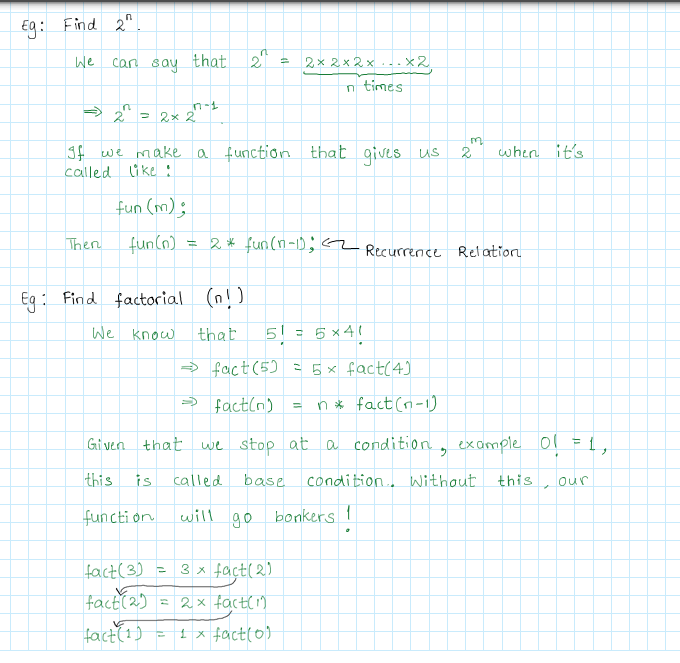 Eg: Find 2ⁿ.
We can say that 2ⁿ = 2×2×2× ... ×2
n times
⇒ 2ⁿ = 2× 2ⁿ⁻¹.
If we make a function that gives us 2ᵐ when it's
called like:
fun(m);
Then fun(n) = 2 * fun(n-1); Recurrence Relation
Eg: Find factorial (n!)
We know that 5! = 5×4!
⇒ fact(5) = 5 × fact(4)
⇒ fact(n) = n * fact(n-1)
Given that we stop at a condition, example 0! = 1,
this is called base condition. Without this, our
function will go bonkers!
fact(3) = 3 × fact(2)
fact(2) = 2 × fact(1)
fact(1) = 1 × fact(0)